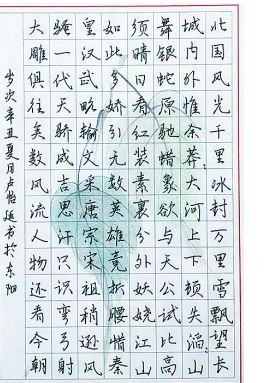 北国风光千里冰封万里雪飘望长
城内外惟余莽:大河上下顿失滔:山
舞银蛇原驰蜡象欲与天公试比高
须晴日看红装素裹分外妖娆江山
如此多娇引无数英雄竞折腰惜秦
皇汉武略输文采唐宗宋祖稍逊风
骚一代天骄成吉思汗只识弯弓射
大雕俱往矣数风流人物还看今朝
岁次辛丑夏月卢怡书于东阳